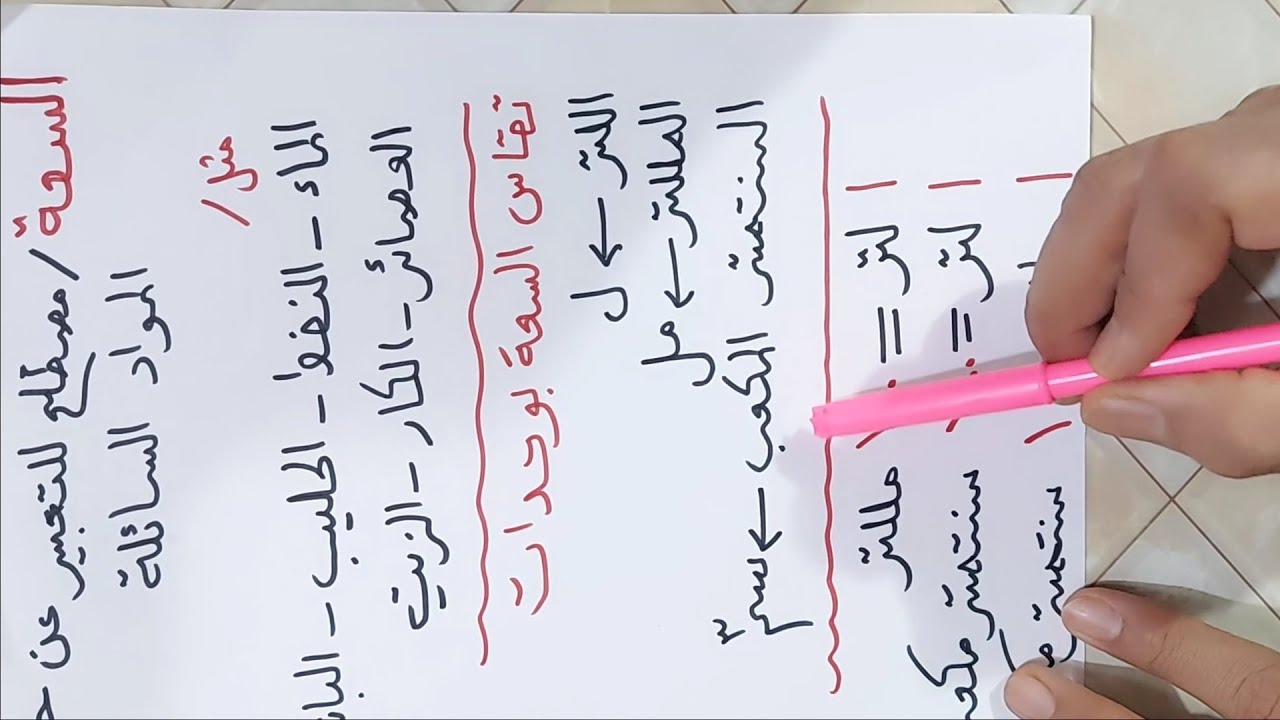 السعة / مصطلح للتعبير عن
المواد السائلة
مثل /
الماء - النفط - الحليب -
العصائر - الكاز - الزيت
تقاس السعة بوحدات
اللتر ← ل
المللتر ← مل
السنتمتر المكعب ← سم٣
١ لتر = مللتر
١ لتر = سنتمتر
١